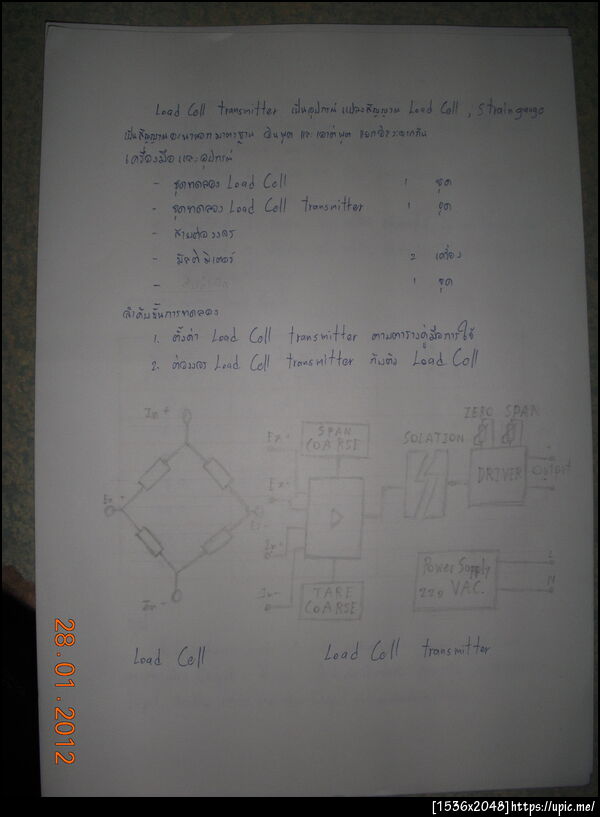 Load Cell transmitter เป็นอุปกรณ์ แปลงสัญญาณ Load Cell , Strain gauge
เป็นสัญญาณอะนาลอกมาตรฐาน อินพุต และ เอาต์พุต แยกอิสระจากกัน
เครื่องมือและอุปกรณ์
- ชุดทดลอง Load Cell 1 ชุด
- ชุดทดลอง Load Cell transmitter 1 ชุด
- สายต่อวงจร
- มัลติมิเตอร์ 2 เครื่อง
- 1 ชุด
ลำดับขั้นการทดลอง
1. ตั้งค่า Load Cell transmitter ตามตารางคู่มือการใช้
2. ต่อวงจร Load Cell transmitter กับตัว Load Cell
In +
Ex +
Ex -
In -
SPAN COARSE
Ex +
Ex -
In +
In -
TARE COARSE
SOLATION
ZERO SPAN
DRIVER
output
+
-
Power Supply
220 VAC.
L
N
Load Cell
Load Cell transmitter
28.01.2012
[1536x2048]https://upic.me/